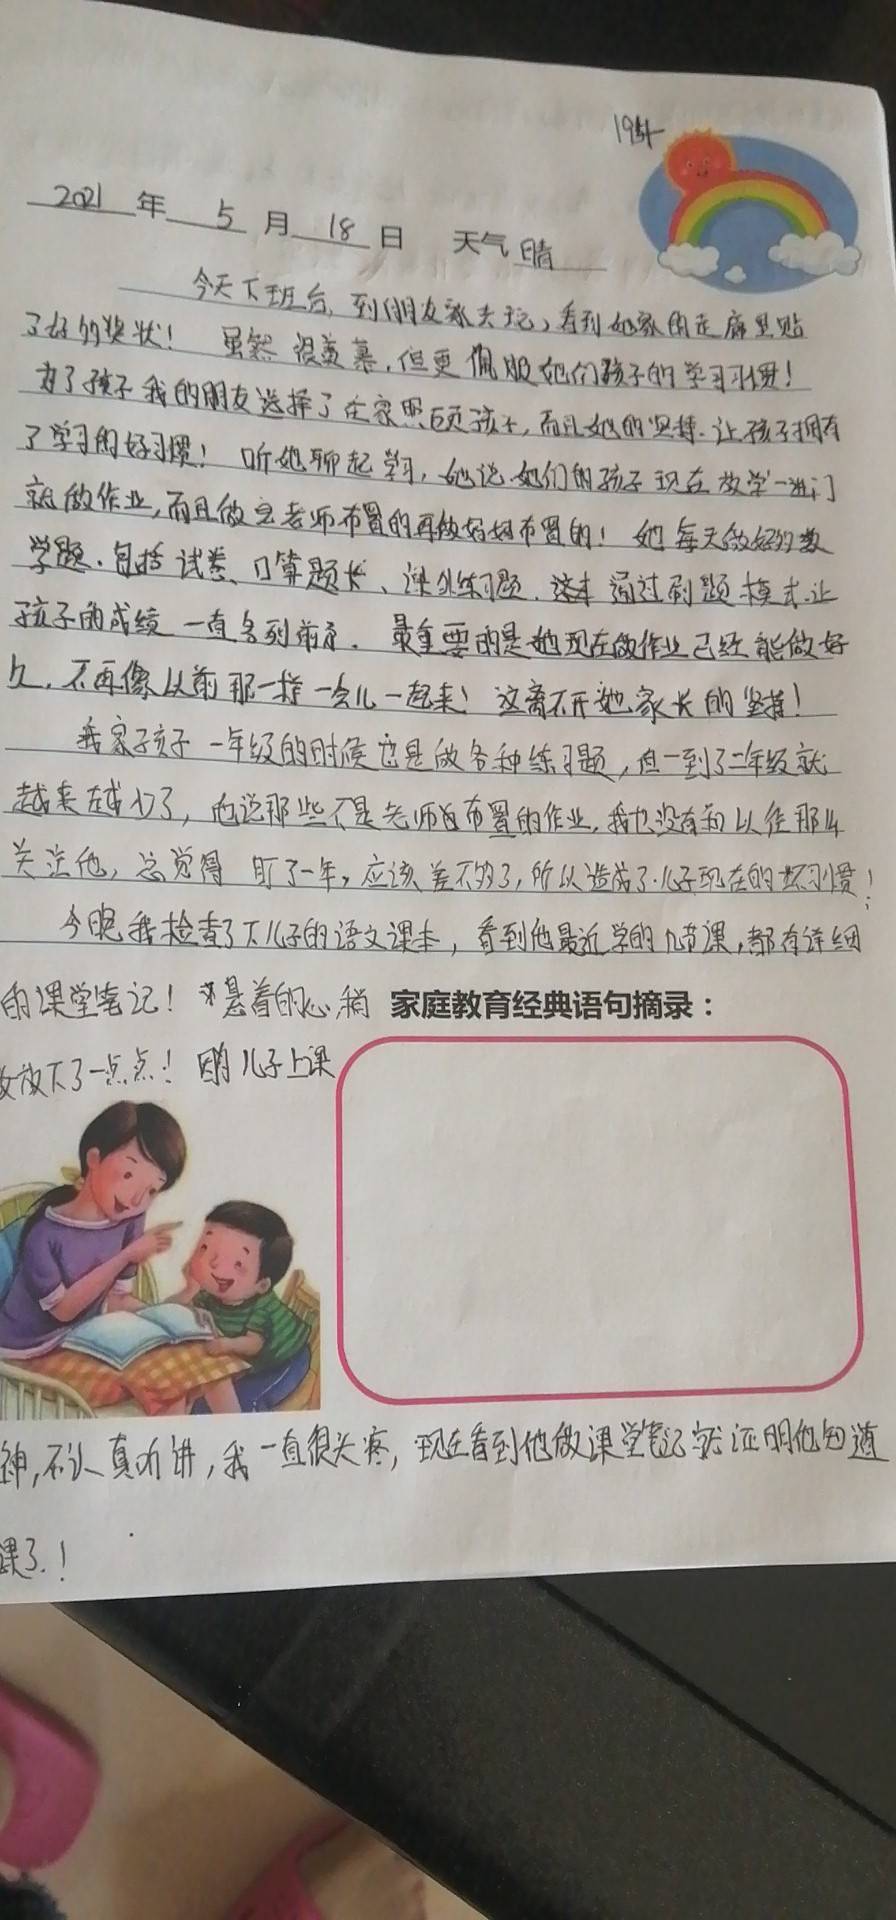 2021年5月18日 天气晴
今天下班后,到朋友家去玩,看到她家的走廊里贴
了好的奖状!虽然很羡慕,但更佩服她们孩子的学习习惯!
为了孩子我的朋友选择了在家照顾孩子,而且她的坚持.让孩子拥有
了学习的好习惯!听她聊起学习,她说她们的孩子现在放学一进门
就做作业,而且做完老师布置的再做妈妈布置的!她每天做好的数
学题.包括试卷、口算题卡、课外练习题.这本通过刷题模式.让
孩子的成绩一直名列前茅.最重要的是她现在做作业已经能做好
久.不再像以前那一样一会儿一起来!这离不开她家长的坚持!
我家孩子一年级的时候也是做各种练习题,但一到了二年级就
越来越少了,他说那些不是老师布置的作业,我也没有和以往那么
关注他,总觉得盯了一年,应该差不多了,所以造成了儿子现在的坏习惯!
今晚我检查了下儿子的语文课本,看到他最近学的几节课,都有详细
的课堂笔记!悬着的心,稍 家庭教育经典语句摘录:
放下了一点点!因为儿子上课
神,不认真听讲,我一直很头疼,现在看到他做课堂笔记就证明他知道
课了.!